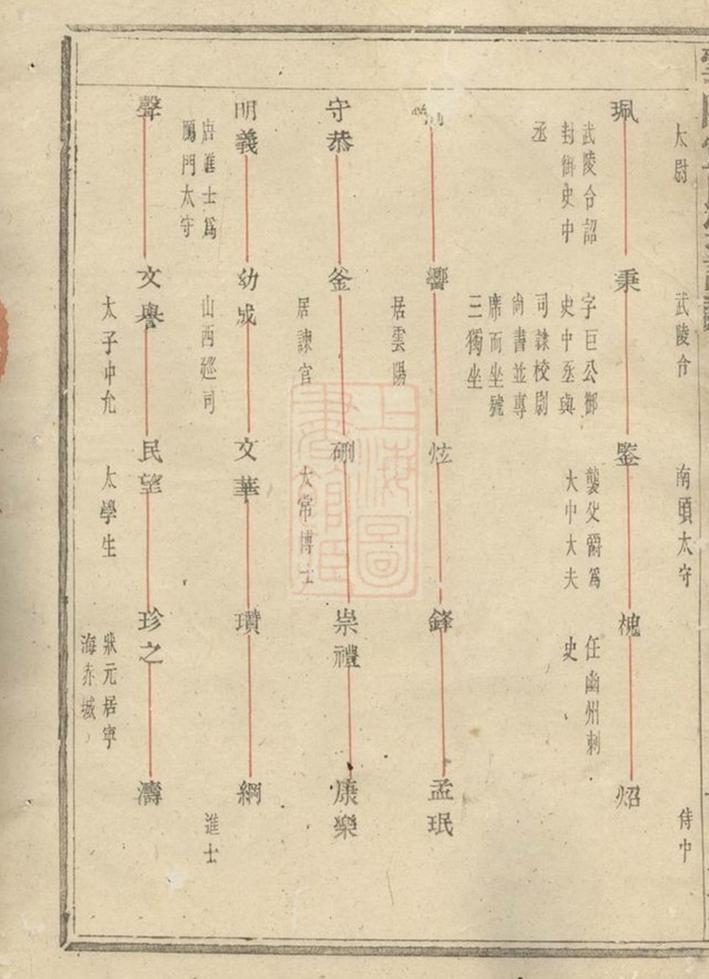 太尉
武陵令
南頭太守
侍中
珮
武陵令詔
封御史中
丞
秉
字巨公御
史中丞與
司隸校尉
尚書並專
席而坐號
三獨坐
鑒
襲父爵為
大中大夫
槐
任幽州刺
史
炤
響
居雲陽
炫
鋒
孟珉
守恭
釜
居諫官
太常博士
崇禮
康樂
明義
唐進士為
鴈門太守
幼成
山西廵司
文華
瓚
網
進士
聲
文譽
太子中允
民望
太學生
珍之
狀元居寧
海赤城
濤